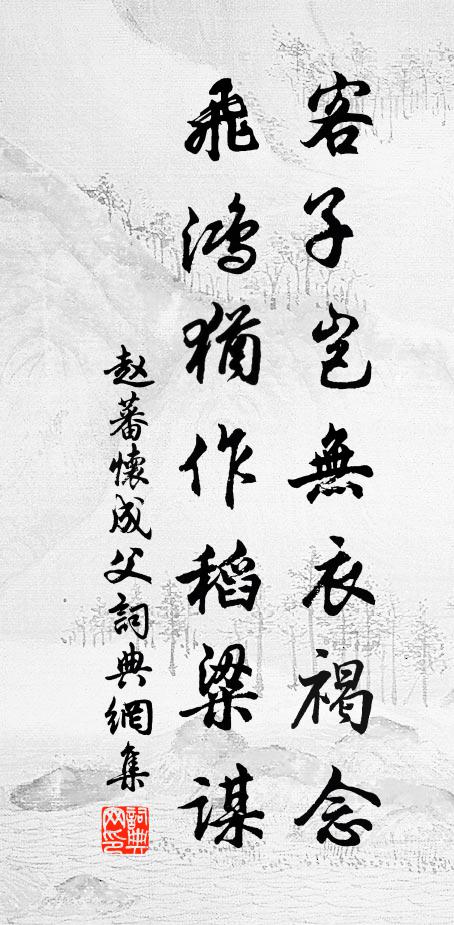 客子岂無衣褐念
飛鴻猶作稻粱謀
赵蕃懷成父詞典網集
詞典網印